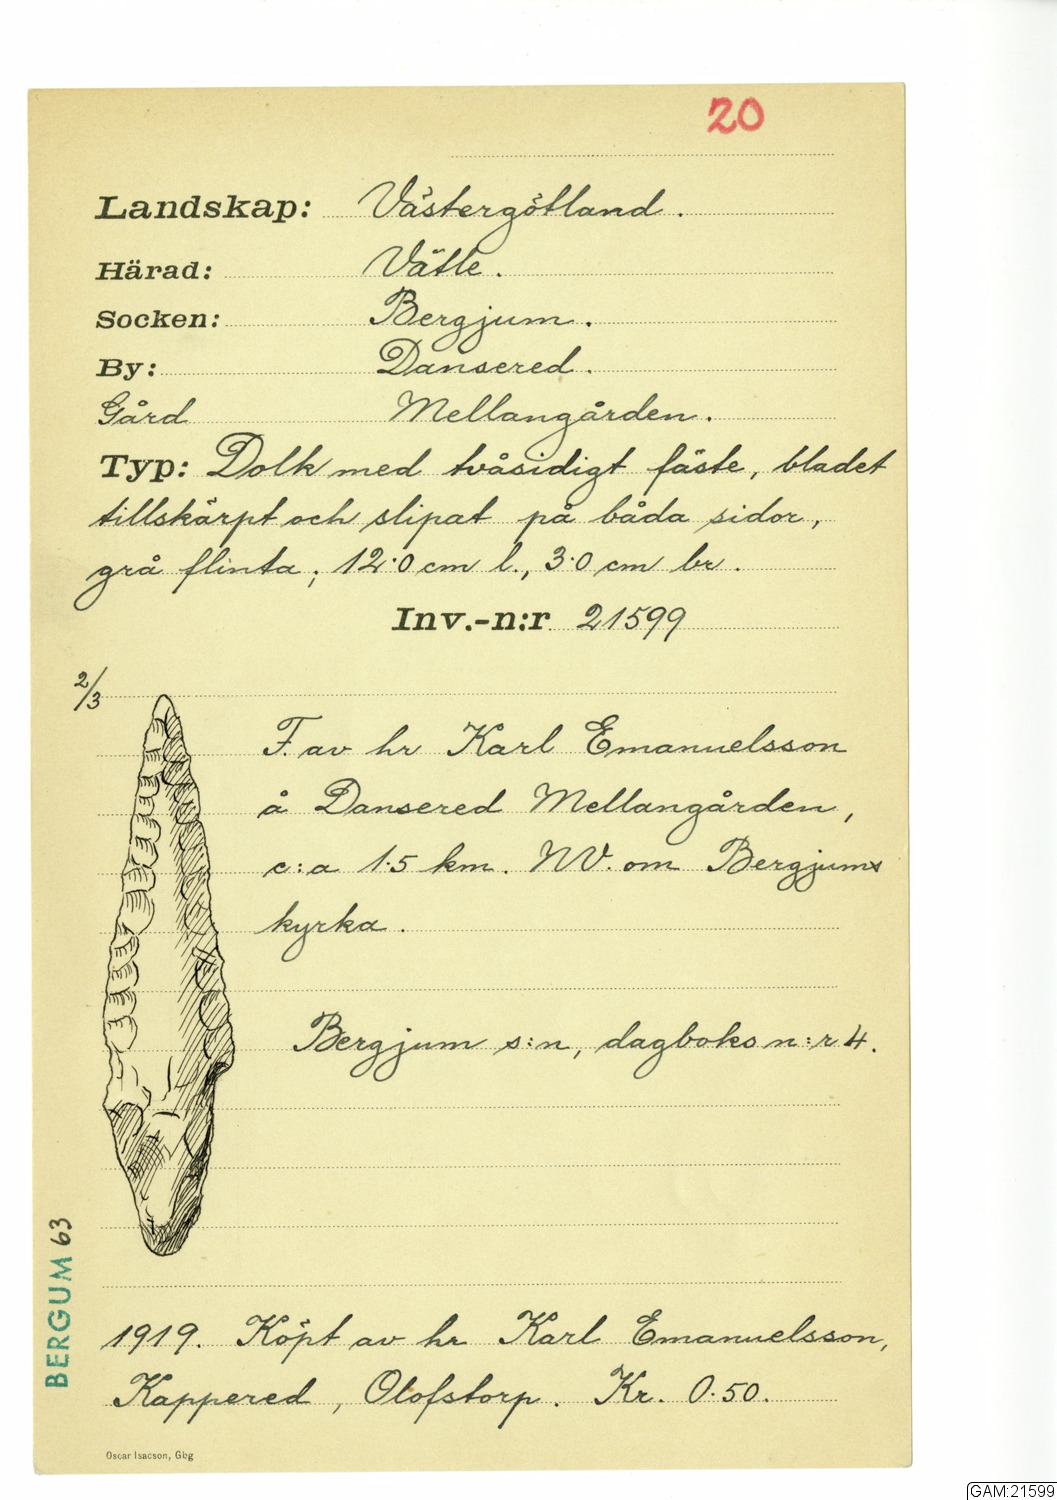 20
Landskap: Västergötland.
Härad: Vätle.
Socken: Bergjum.
By: Dansered.
Gård Mellangården.
Typ: Dolk med tvåsidigt fäste, bladet
tillskärpt och slipat på båda sidor,
grå flinta; 12·0 cm l., 3·0 cm br.
Inv.-n:r 21599
2/3
F. av hr Karl Emanuelsson
å Dansered Mellangården,
c:a 1·5 km. NV. om Bergjums
kyrka.
Bergjum s:n, dagboks n:r 4.
BERGUM 63
1919. Köpt av hr Karl Emanuelsson,
Kappered, Olofstorp. Kr. 0·50.
Oscar Isacson, Gbg
GAM:21599